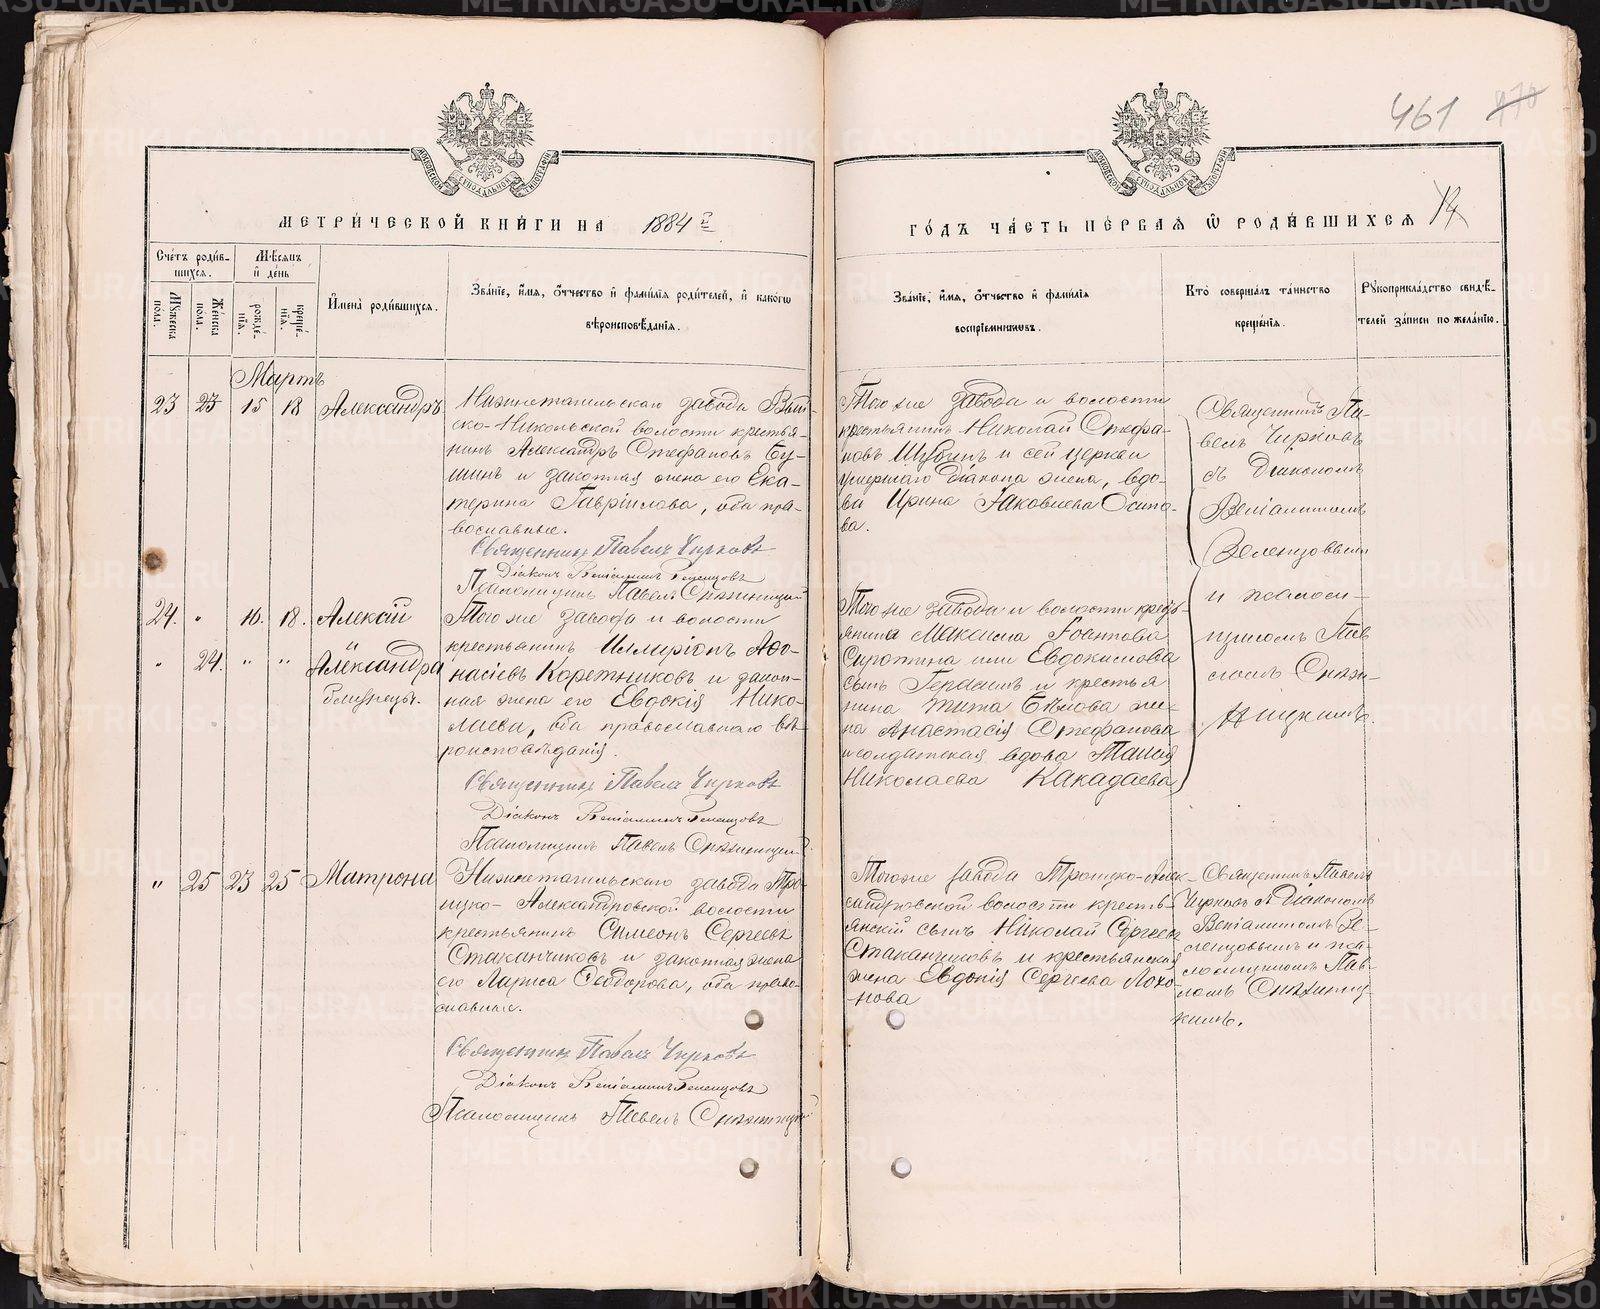 461 470
МЕТРИЧЕСКОЙ КНИГИ НА 1884 г. ГОДЪ ЧАСТЬ ПЕРВАЯ Ѡ РОДИВШИХСЯ
Счетъ родив-
шихся.
Мѣсяцъ
и день
Мужеска
пола.
Женска
пола.
рожде-
нія.
креще-
нія.
Имена родившихся.
Званіе, имя, отчество и фамилія родителей, и какогѡ
вѣроисповѣданія.
Званіе, имя, отчество и фамилія
воспріемниковъ.
Кто совершалъ таинство
крещенія.
Рукоприкладство свидѣ-
телей записи по желанію.
Мартъ
23 23 15 18 Александръ
Нижнетагильскаго завода Вый-
ско-Никольской волости крестья-
нинъ Александръ Стефановъ Бу-
шинъ и законная жена его Ека-
терина Гавріилова, оба пра-
вославные.
Священникъ Павелъ Чирковъ
Діаконъ Веніаминъ Зеленцовъ
Псаломщикъ Павелъ
Того же завода и волости
крестьянинъ Николай Стефа-
новъ Шубинъ и сей церкви
умершаго Діакона жена, вдо-
ва Ирина Іаковлева Осипо-
ва.
Священникъ Па-
велъ Чирковъ
съ Діакономъ
Веніаминомъ
Зеленцовымъ
и псалом-
щикомъ Пав
ломъ
24. " 16. 18. Алексій
" 24. " " Александра
близнецы.
Того же завода и волости
крестьянинъ Илларіонъ Аѳа-
насіевъ Коретниковъ и закон-
ная жена его Евдокія Нико-
лаева, оба православнаго вѣ-
роисповѣданія.
Священникъ Павелъ Чирковъ
Діаконъ Веніаминъ Зеленцовъ
Псаломщикъ Павелъ
Того же завода и волости кресть-
янина Максима
Сиротина или Евдокимова
сынъ Герасимъ и крестья
нина Тита Бѣлова же-
на Анастасія Стефанова
и солдатская вдова Таисія
Николаева Какадаева
" 25 23 25 Матрона
Нижнетагильскаго завода Тро-
ицко-Александровской волости
крестьянинъ Симеонъ Сергеевъ
Стаканчиковъ и законная жена
его Лариса Ѳеодорова, оба право-
славные.
Священникъ Павелъ Чирковъ
Діаконъ Веніаминъ Зеленцовъ
Псаломщикъ Павелъ
Того же завода Троицко-Алек-
сандровской волости кресть-
янскій сынъ Николай Сергеевъ
Стаканчиковъ и крестьянская
жена Евдокія Сергеева Лохо-
нова
Священникъ Павелъ
Чирковъ съ Діакономъ
Веніаминомъ Зе-
ленцовымъ и пса-
ломщикомъ Пав-
ломъ